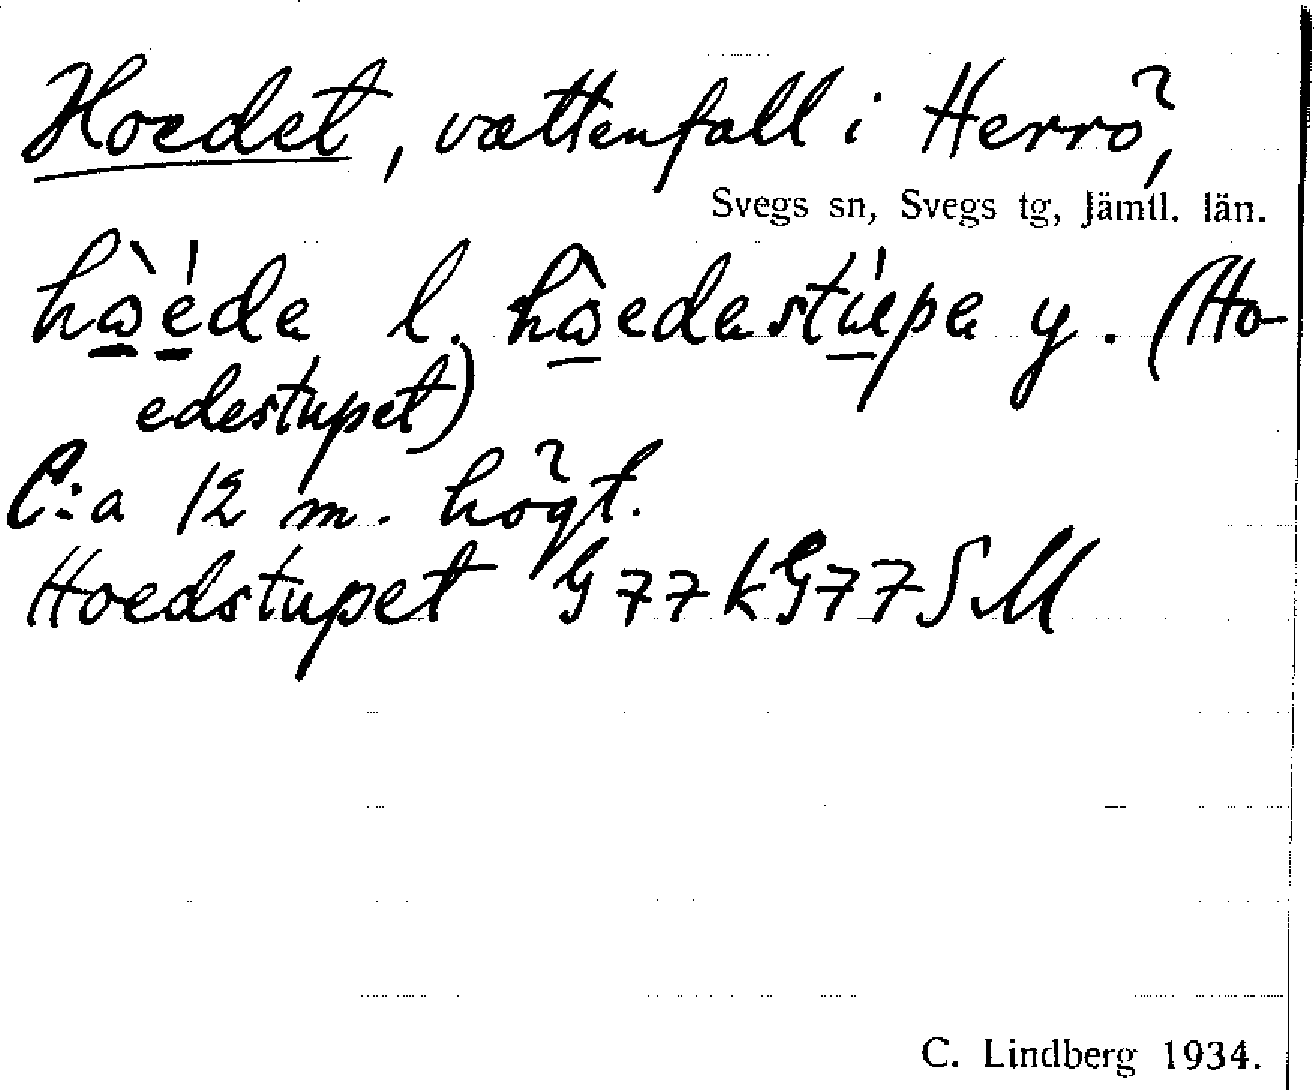 Hoedet, vattenfall i Herrö,
Svegs sn, Svegs tg, Jämtl. län.
l. y. (Ho-
edestupet)
C:a 12 m. högt.
Hoedstupet G77kG77SM
C. Lindberg 1934.